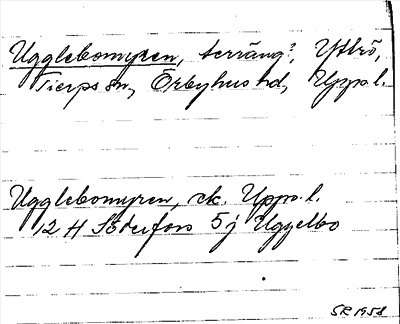 Ugglebomyren, terräng?, Ytlrö,
Tierps sn, Örbyhus hd, Uppl.
Ugglebomyren, ek. Upps. l.
12 H Söderfors 5 j Uggelbo
SR 1958